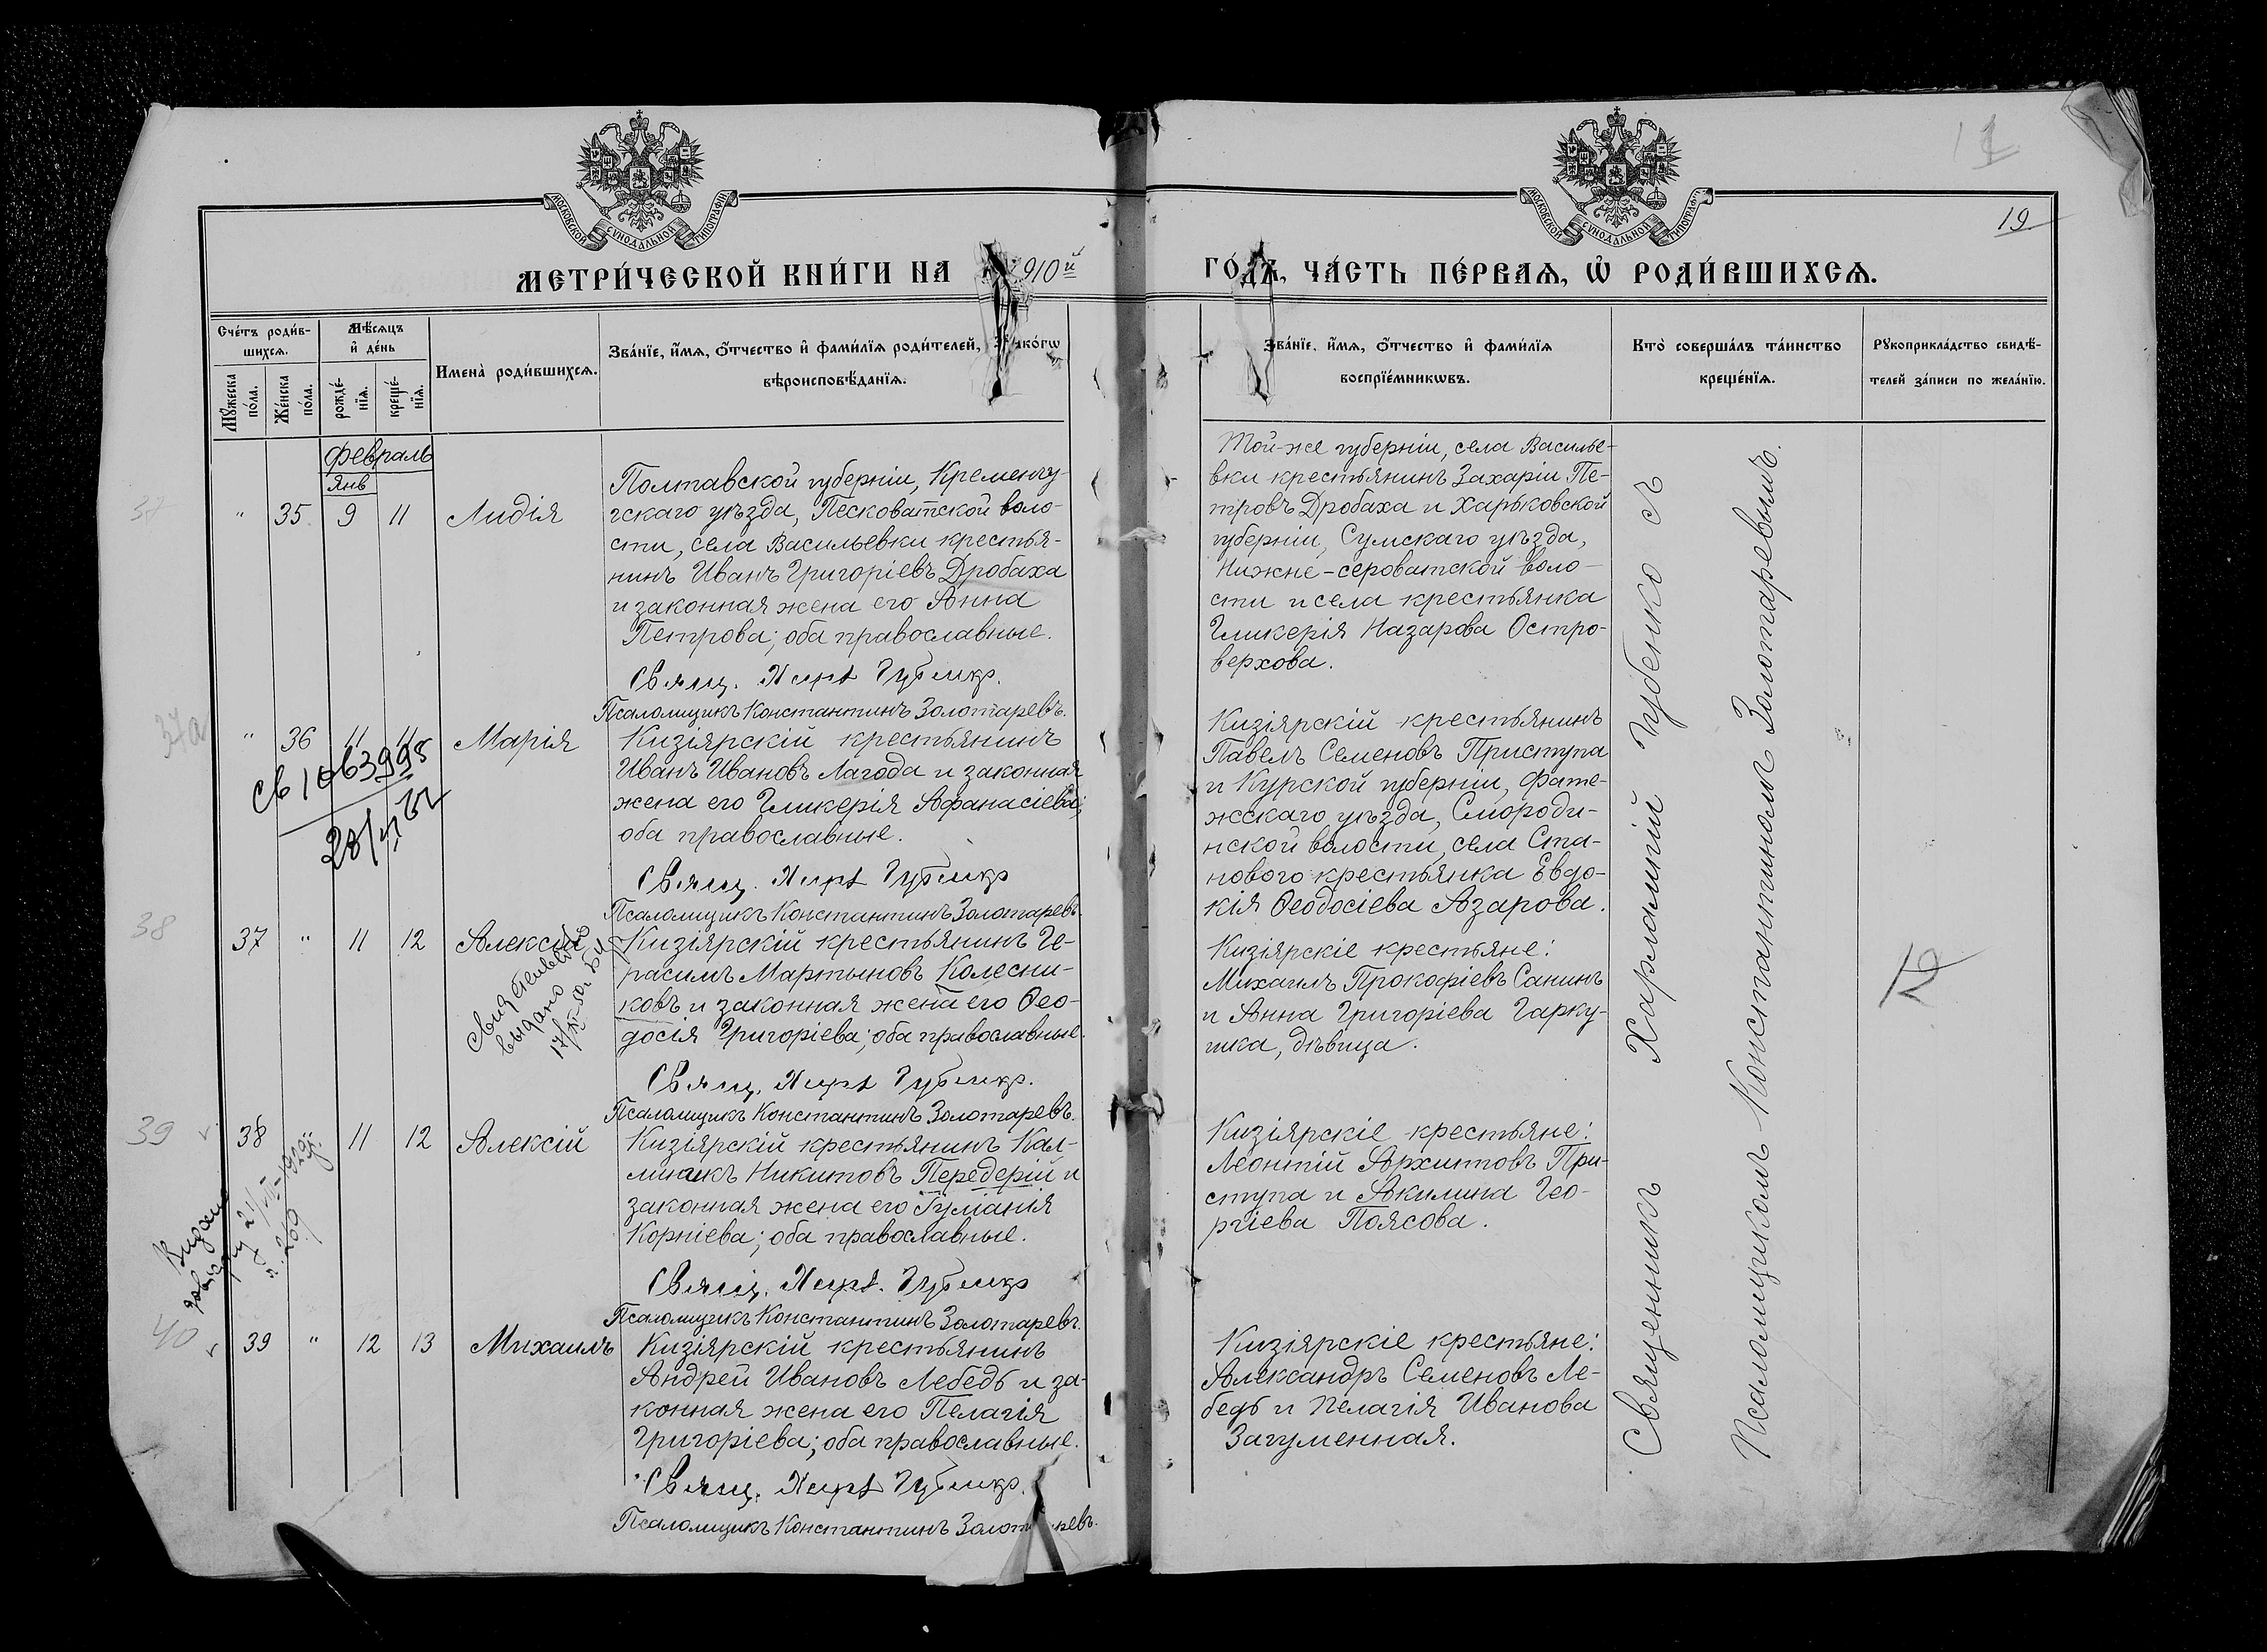 МОСКОВСКОЙ СѴНОДАЛЬНОЙ ТИПОГРАФІИ
МОСКОВСКОЙ СѴНОДАЛЬНОЙ ТИПОГРАФІИ
19
МЕТРИ́ЧЕСКОЙ КНИ́ГИ НА 910й
ГО́ДЪ, ЧА́СТЬ ПЕ́РВАѦ, Ѡ҆ РОДИ́ВШИХСѦ.
Сче́тъ роди́в-
шихсѧ.
Мꙋ́жеска по́ла.
Же́нска по́ла.
Мѣ́сѧцъ
и҆ де́нь
рожде́-
нїѧ.
креще́-
нїѧ.
Имена̀ роди́вшихсѧ.
Зва́нїе, и҆́мѧ, ѻ҆́тчество и҆ фами́лїѧ роди́телей, и҆ како́гѡ
вѣроисповѣ́данїѧ.
Зва́нїе, и҆́мѧ, ѻ҆́тчество и҆ фами́лїѧ
воспрїе́мникѡвъ.
Кто̀ соверша́лъ та́инство
креще́нїѧ.
Рꙋкоприкла́дство свидѣ́-
телей за́писи по жела́нїю.
Февраль
Янв
37
" 35. 9 11 Лидія
Полтавской губерніи, Кременчу-
гскаго уѣзда, Песковатской воло-
сти, села Васильевки крестья-
нинъ Иванъ Григоріевъ Дробаха
и законная жена его Анна
Петрова; оба православные.
Свящ. Харл. Губенко.
Псаломщикъ Константинъ Золотаревъ.
Той-же губерніи, села Василье-
вки крестьянинъ Захарій Пе-
тровъ Дробаха и Харьковской
губерніи, Сумскаго уѣзда,
Нижне-сероватской воло-
сти и села крестьянка
Гликерія Назарова Остро-
верхова.
37а
" 36 11 11 Марія
Св 1063995
Кизіярскій крестьянинъ
Иванъ Ивановъ Лагода и законная
жена его Гликерія Афанасіева;
оба православные.
Свящ. Харл. Губенко
Псаломщикъ Константинъ Золотаревъ.
Кизіярскій крестьянинъ
Павелъ Семеновъ Приступа
и Курской губерніи, Фате-
жскаго уѣзда, Смороди-
нской волости, села Ста-
нового крестьянка Евдо-
кія Ѳеодосіева Азарова.
38
37 " 11 12 Алексій
Свидетельство
выдано
Кизіярскій крестьянинъ Ге-
расимъ Мартыновъ Колесни-
ковъ и законная жена его Ѳео-
досія Григоріева; оба православные.
Свящ. Харл. Губенко.
Псаломщикъ Константинъ Золотаревъ.
Кизіярскіе крестьяне:
Михаилъ Прокофіевъ Санинъ
и Анна Григоріева Гарку-
шка, дѣвица.
39
38 " 11 12 Алексій
Кизіярскій крестьянинъ Кал-
линикъ Никитовъ Передерій и
законная жена его Іуліанія
Корніева; оба православные.
Свящ. Харл. Губенко
Псаломщикъ Константинъ Золотаревъ.
Кизіярскіе крестьяне:
Леонтій Архиповъ При-
ступа и Акилина Гео-
ргіева Поясова.
40
39 " 12 13 Михаилъ
Кизіярскій крестьянинъ
Андрей Ивановъ Лебедь и за-
конная жена его Пелагія
Григоріева; оба православные.
Свящ. Харл. Губенко.
Псаломщикъ Константинъ Золотаревъ.
Кизіярскіе крестьяне:
Александръ Семеновъ Ле-
бедь и Пелагія Иванова
Загуменная.
Священникъ Харлампій Губенко съ
Псаломщикомъ Константиномъ Золотаревымъ.